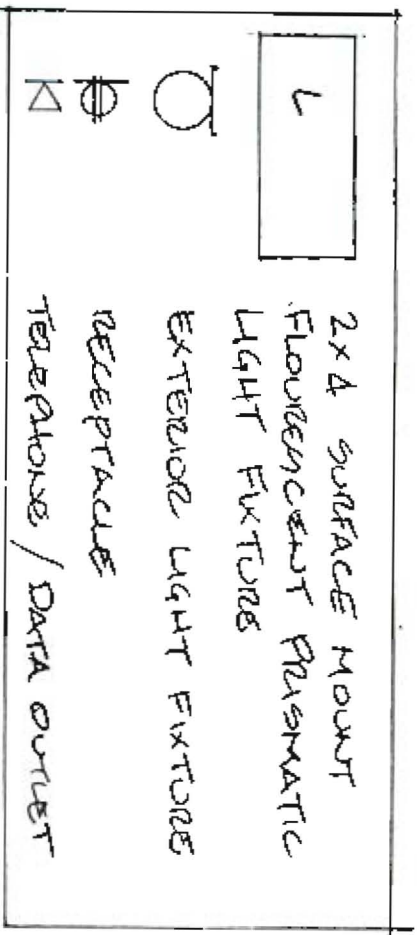 L
2x4 SURFACE MOUNT
FLOURESCENT PRISMATIC
LIGHT FIXTURE
EXTERIOR LIGHT FIXTURE
RECEPTACLE
TELEPHONE / DATA OUTLET